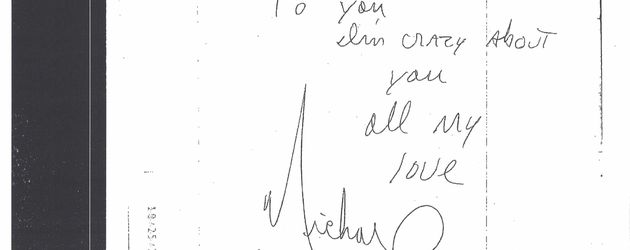 To you
I'm CRAZY About
you
all My
love
Michael